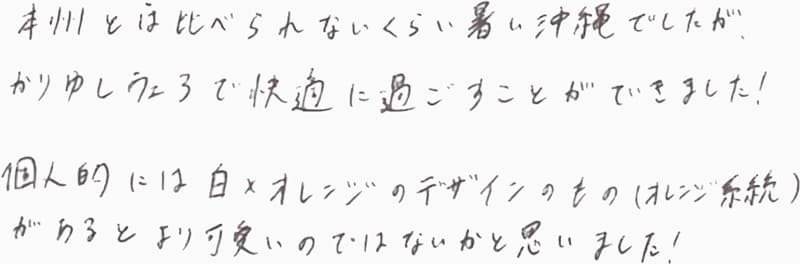 本州とは比べられないくらい暑い沖縄でしたが、
かりゆしウェアで快適に過ごすことができました!
個人的には白×オレンジのデザインのもの(オレンジ系統)
があるとより可愛いのではないかと思いました!